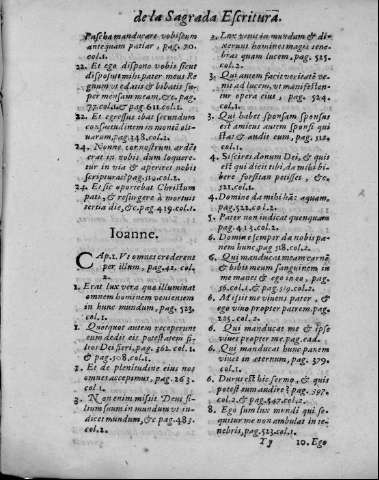 de la Sagrada Escritura.
Pascha manducare vobiscum
antequam patiar, pag. 20.
col.1.
22. Et ego dispono vobis sicut
disposuit mihi pater meus Re
gnum vt edatis & bibatis su-
per mensam meam, &c. pag.
77. col.1. & pag 611. col.2.
22. Et egressus ibat secundum
consuetudinem in monte oli-
uarum, pag. 348. col.1.
24. Nonne cor nostrum ardēs
erat in nobis dum loquere-
tur in via & aperiret nobis
scripturas? pag. 510. col.2.
24. Et sic oportebat Christum
pati, & resurgere à mortuis
tertia die, &c. pag 419. col.1.
Ioanne.
CAp.1. Vt omnes crederent
per illum, pag. 42. col.
2.
1. Erat lux vera quæ illuminat
omnem hominem venientem
in hunc mundum, pag. 523.
col.1.
1. Quotquot autem receperunt
eum dedit eis potestatem fi-
lios Dei fieri, pag. 362. col.1.
& pag. 508. col.1.
1. Et de plenitudine eius nos
omnes accepimus, pag. 263.
col.1.
3. Non enim misit Deus fi-
lium suum in mundum vt iu-
dicet mundum, &c pag 483.
col.2.
3. Lux venit in mundum & di-
xerunt homines magis tene-
bras quam lucem, pag. 525.
col.2.
3. Qui autem facit veritatē ve-
nit ad lucem, vt manifesten-
tur opera eius, pag. 524.
col.1.
3. Qui habet sponsam sponsus
est amicus autem sponsi qui
stat & audit eum, pag. 312.
col.1.
4. Si scires donum Dei, & quis
est qui dicit tibi, da mihi bi-
bere forsitan petisses, &c.
521. col.1.
4. Domine da mihi hāc aquam,
pag. 522. col.2.
5. Pater non iudicat quenquam
pag. 413. col.2.
6. Domine semper da nobis pa-
nem hunc, pag 518. col.2.
6. Qui manducat meam carnē
& bibit meum sanguinem in
me manet & ego in eo, pag.
56. col.1. & pag. 519. col.2.
6. Misit me viuens pater, &
ego viuo propter patrem, pag.
225. col.2.
6. Qui manducat me & ipse
viuet propter me, pag. ead.
6. Qui manducat hunc panem
viuet in æternum, pag. 379.
col.1.
6. Durus est hic sermo, & quis
potest eum audire? pag. 397.
col.2. & pag. 547. col.2.
8. Ego sum lux mundi qui se-
quitur me non ambulat in te-
nebris, pag. 523. col.1.
Yy
10. Ego